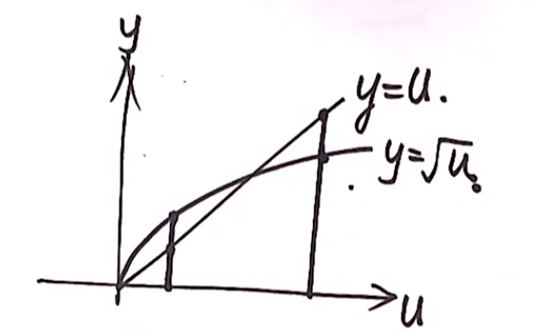 y
y=u.
y=√u.
u